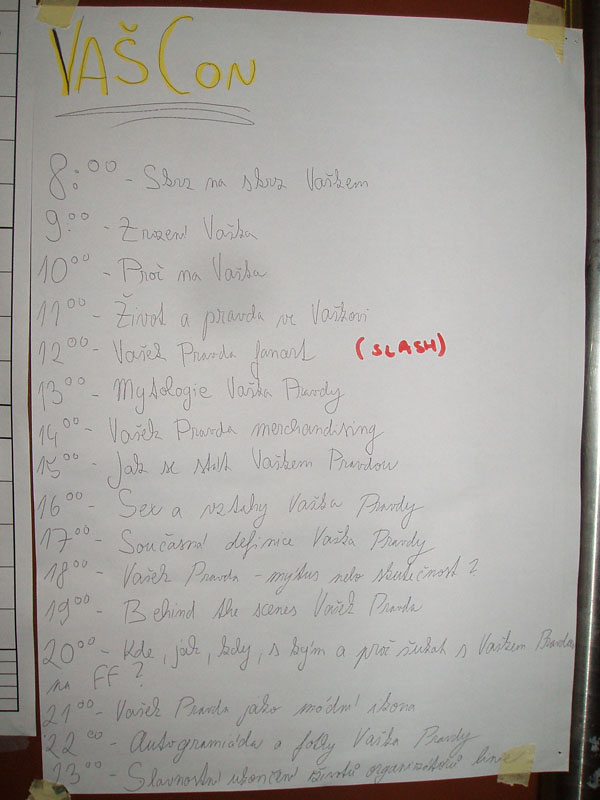 VAŠCON
8:00 - Skrz na skrz Vaškem
9:00 - Zrození Vaška
10:00 - Proč na Vaška
11:00 - Život a pravda ve Vaškovi
12:00 - Vašek Pravda fanart (SLASH)
13:00 - Mytologie Vaška Pravdy
14:00 - Vašek Pravda merchandising
15:00 - Jak se stát Vaškem Pravdou
16:00 - Sex a vztahy Vaška Pravdy
17:00 - Současná definice Vaška Pravdy
18:00 - Vašek Pravda - mýtus nebo skutečnost?
19:00 - Behind the scenes Vašek Pravda
20:00 - Kde, jak, kdy, s kým a proč šukat s Vaškem Pravdou
na FF?
21:00 - Vašek Pravda jako módní ikona
22:00 - Autogramiáda a fotky Vaška Pravdy
23:00 - Slavnostní ukončení životů organizátorů linie